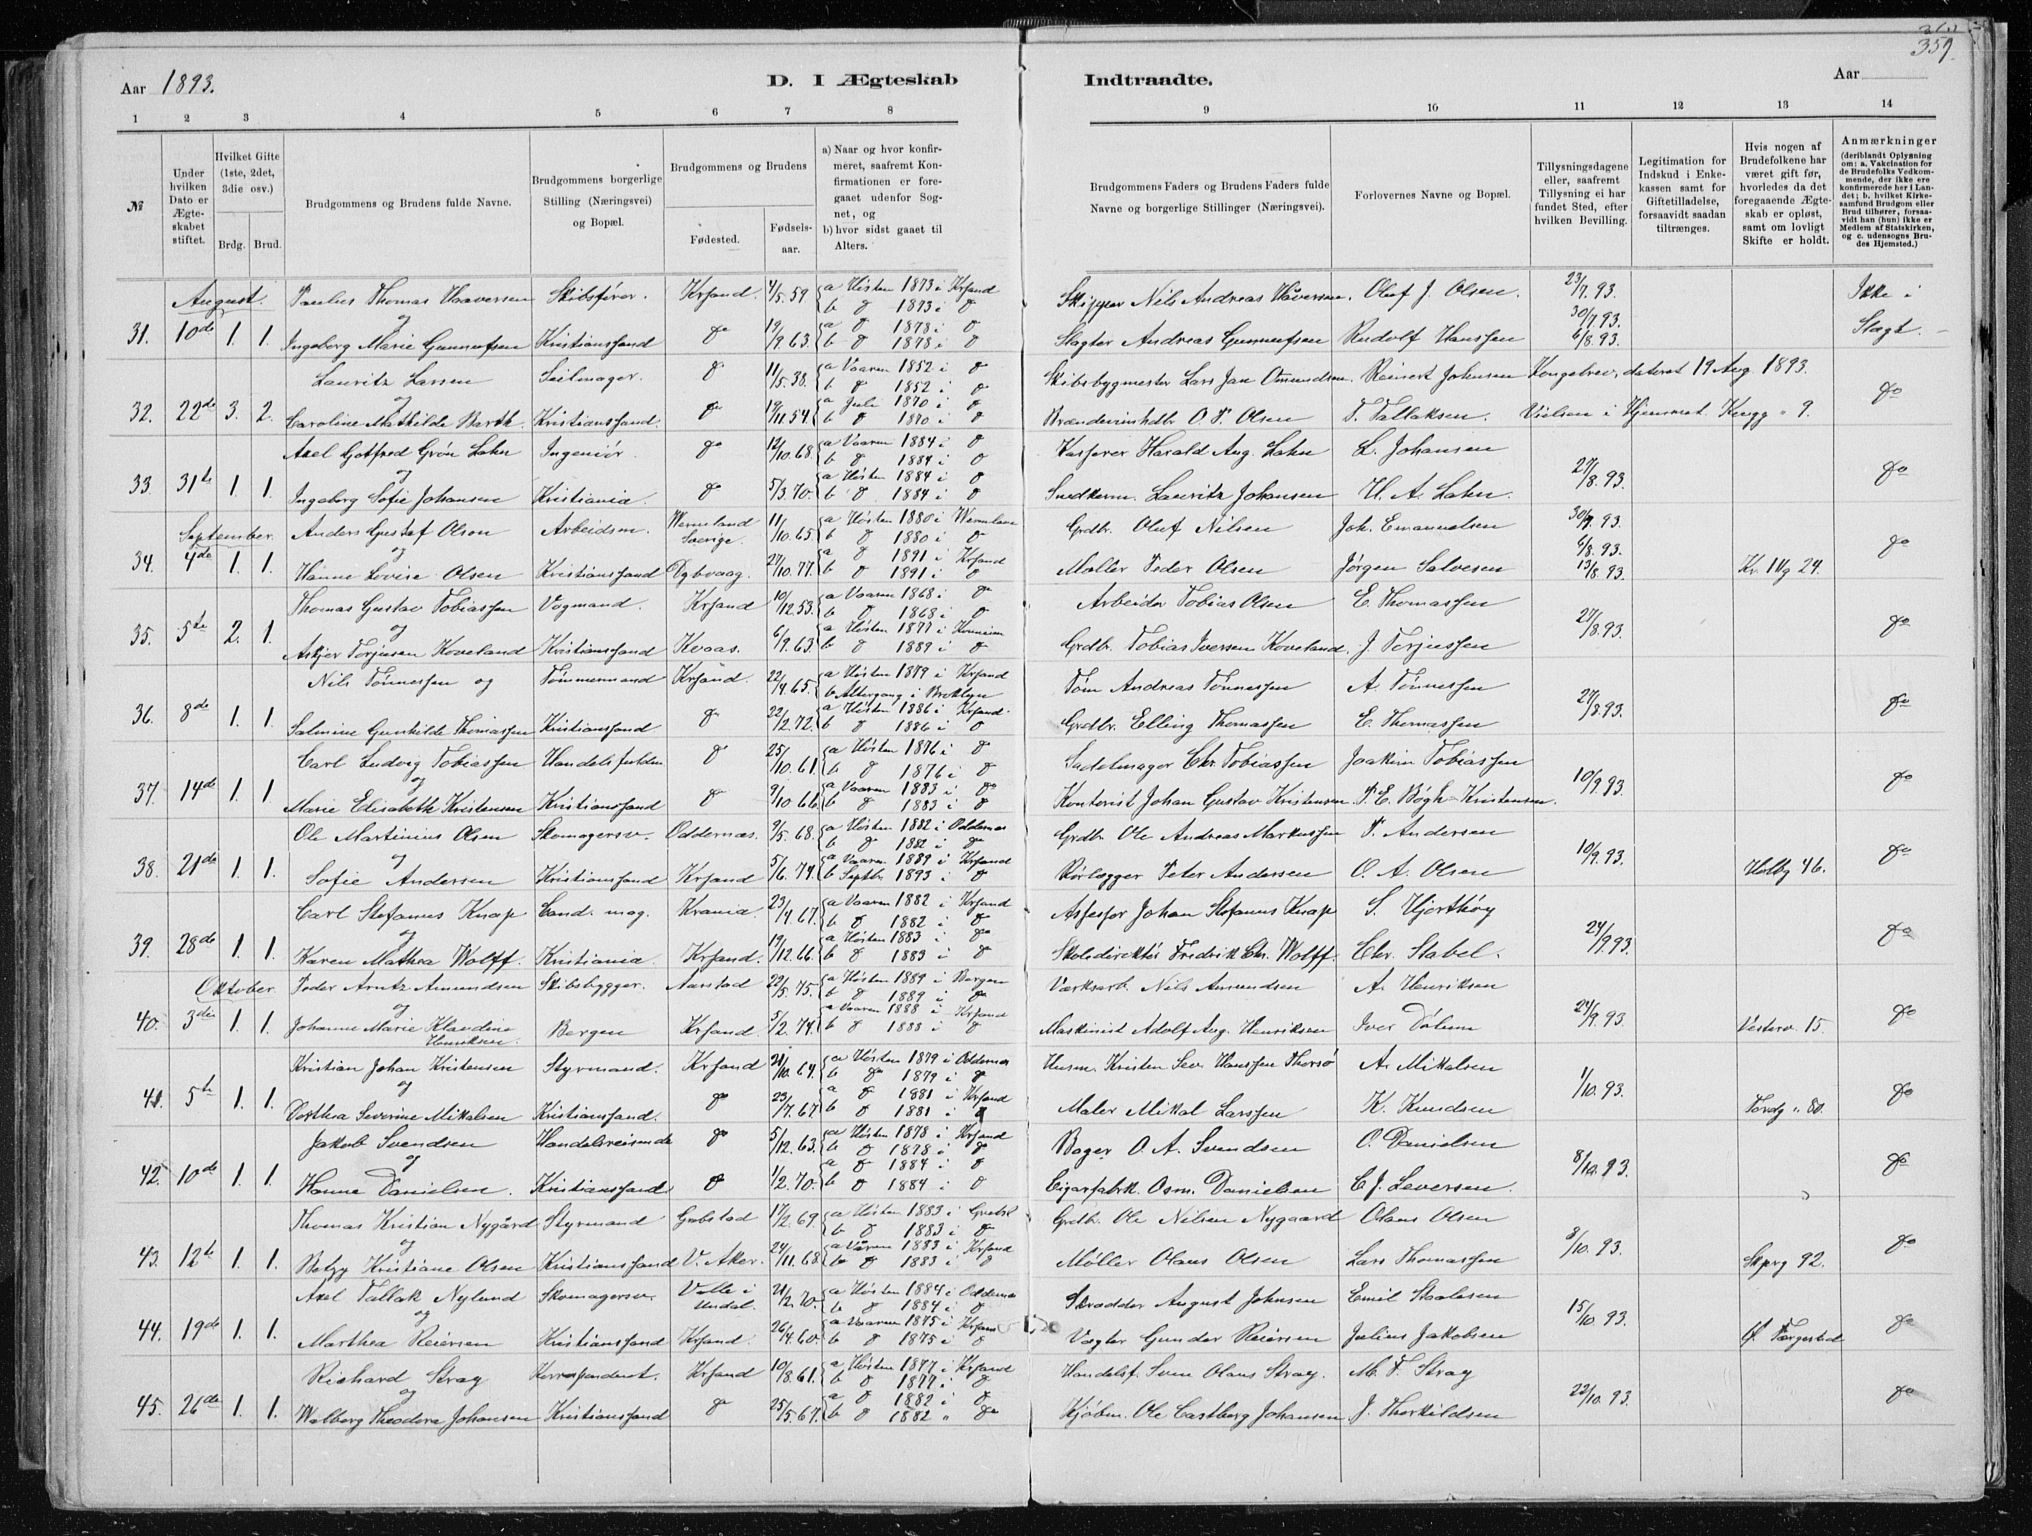 360
359.
Aar 1893. D. I Ægteskab Indtraadte. Aar
1 2 3 4 5 6 7 8 9 10 11 12 13 14
№
Under hvilken Dato er Ægteskabet stiftet.
Hvilket Gifte (1ste, 2det, 3die osv.)
Brdg. Brud.
Brudgommens og Brudens fulde Navne.
Brudgommens borgerlige Stilling (Næringsvei) og Bopæl.
Brudgommens og Brudens
Fødested. Fødselsaar.
a) Naar og hvor konfirmeret, saafremt Konfirmationen er foregaaet udenfor Sognet, og
b) hvor sidst gaaet til Alters.
Brudgommens Faders og Brudens Faders fulde Navne og borgerlige Stillinger (Næringsvei).
Forlovernes Navne og Bopæl.
Tillysningsdagene eller, saafremt Tillysning ei har fundet Sted, efter hvilken Bevilling.
Legitimation for Indskud i Enkekassen samt for Giftetilladelse, forsaavidt saadan tiltrænges.
Hvis nogen af Brudefolkene har været gift før, hvorledes da det foregaaende Ægteskab er opløst, samt om lovligt Skifte er holdt.
Anmærkninger
(deriblandt Oplysning om: a. Vakcination for de Brudefolks Vedkommende, der ikke ere konfirmerede her i Landet; b. hvilket Kirkesamfund Brudgom eller Brud tilhører, forsaavidt han (hun) ikke er Medlem af Statskirken, og c. udensogns Brudes Hjemsted.)
August. Paulus Thomas Haaversen Skibsfører. Krsand. 4/5.59 a Høsten 1873 i Krsand Skipper Nils Andreas Håversen. Oluf J. Olsen. 23/7.93. Ikke i
og b do 1893 i do 30/7.93.
31. 10de 1. 1. Ingeborg Marie Gunnufsen Kristianssand do 19/9.63. a do 1878 i do b do 1878 i do Slagter Andreas Gunnufsen Rudolf Hanssen 6/8.93. Slægt.
Lauritz Larsen Seilmager. do 11/5.38. a Vaaren 1852 i do b do 1852 i do Skibsbygmester Lars Jan Omundsen. Reinert Johnsen Kongebrev, dateret 19 Aug 1893.
og do
32. 22de 3. 2. Caroline Mathilde Barth Kristianssand. do 19/11.54. a Juli 1870 i do b do 1870 i do Brændevinshdlr O. P. Olsen T. Tallaksen. Vielsen i Hjemmet Kongg. 9.
Axel Gotfred Grön Lahn Ingeniør. do 12/10.68. a Vaaren 1884 i do b do 1884 i do Kasserer Harald Aug. Lahn L. Johansen
og 27/8.93. do
33. 31te 1. 1. Ingeborg Sofie Johansen Kristiania. do 5/3.70. a Høsten 1884 i do b do 1884 i do Snedkerm. Lauritz Johansen H. A. Lahn.
September. Anders Gustaf Olson Arbeidsm. Wermland Sverige. 11/10.65. a Høsten 1880 i Wermland b do 1880 i do Grdbr. Oluf Nilsen Joh. Emanuelsen 30/7.93.
og 6/8.93. do
34. 4de 1. 1. Hanne Lovise Olsen Kristianssand Dybvaag. 27/10.77. a do 1891 i Krsand b do 1891 i do Møller Peder Olsen Jørgen Salvesen 13/8.93. Kr. IVg 24.
Thomas Gustav Tobiassen Vognmand. Krsand 10/12.53. a Vaaren 1868 i do b do 1868 i do Arbeider Tobias Olsen E. Thomassen
og 27/8.93. do
35. 5te 2. 1. Askjer Torjusen Koveland Kristianssand Kvaas. 6/9.63. a Høsten 1877 i b do 1889 i do Grdbr. Tobias Iversen Koveland. J. Torjussen
Nils Tönnessen og Tømmermand Krsand. 22/4.65. a Høsten 1879 i Krsand b Altergang i Broklyn Tøm Andreas Tönnessen A. Tönnessen
27/8.93. do
36. 8de 1. 1. Salmine Gunhilde Thomassen Kristianssand do 22/2.72. a Høsten 1886 i Krsand. b do 1886 i do Grdbr. Elling Thomassen E. Thomassen
Carl Ludvig Tobiassen Handelsfuldm do 25/10.61. a Høsten 1876 i do b do 1876 i do Sadelmager Chr. Tobiassen Joakim Tobiassen
og 10/9.93. do
37. 14de 1. 1 Marie Elisabeth Kristensen Kristianssand do 9/10.66. a Vaaren 1883 i do b do 1883 i do Kontorist Johan Gustav Kristensen P. E. Bögh-Kristensen.
Ole Martinius Olsen Skomagersv. Oddernæs. 9/5.68. a Høsten 1882 i Oddernæs b do 1882 i do Grdbr. Ole Andreas Markussen P. Andersen
og 10/9.93. do
38. 21de 1. 1. Sofie Andersen Kristianssand Krsand 5/6.74. a Vaaren 1889 i Krsand b Septbr. 1893 i do Rørlægger Peter Andersen O. A. Olsen Holbg 46.
Carl Stefanus Knap Cand. mag. Krania. 23/4.67. a Vaaren 1882 i Krsand b do 1882 i do Assessor Johan Stefanus Knap S. Hjorthöy
og 24/9.93. do
39. 28de 1. 1. Karen Mathea Wolff. Kristiania. Krsand. 19/12.66. a Høsten 1883 i do b do 1883 i do Skoledirektör Fredrik Chr. Wolff. Chr. Stabel.
Oktober. Peder Arntz Amundsen Skibsbygger. Aarstad 22/5.75. a Høsten 1889 i Bergen b do 1889 i do Værksarb. Nils Amundsen A. Henriksen
og 24/9.93. do
40. 3die 1. 1. Johanne Marie Klaudine Henriksen. Bergen Krsand. 5/2.74. a Vaaren 1888 i Krsand b do 1888 i do Maskinist Adolf Aug. Henriksen Iver Dölum Vesterv. 15.
Kristian Johan Kristensen Styrmand. Krsand 21/10.64. a Høsten 1879 i Oddernæs b do 1879 i do Husm. Kristen Sev. Hanssen Thorsø A. Mikalsen
og 1/10.93. do
41. 5te 1. 1. Dorthea Severine Mikalsen Kristianssand. do 23/7.67. a do 1881 i Krsand b do 1881 i do Maler Mikal Larssen K. Knudsen Tordg. 80.
Jakob Svendsen Handelsreisende do 5/12.63. a Høsten 1878 i Krsand b do 1878 i do Bager O. A. Svendsen O. Danielsen
og 8/10.93. do
42. 10de 1. 1. Hanne Danielsen. Kristianssand do 1/2.70. a do 1884 i do b do 1884 i do Cigarfabrk. Osm. Danielsen C. J. Severtsen.
Thomas Kristian Nygård Styrmand Grebstad 17/2.69. a Høsten 1883 i Grebst b do 1883 i do Grdbr. Ole Nilsen Nygaard Olaus Olsen
og 8/10.93. do
43. 12te 1. 1. Betzy Kristiane Olsen Kristianssand V. Aker. 24/11.68. a Våren 1883 i Krsand b do 1883 i do Møller Olaus Olsen Lars Thomassen 92.
Axel Tallak Nylund Skomagersv. Valle i Undal. 21/2.70. a Høsten 1884 i Oddernæs b do 1884 i do Skrædder August Johnsen Emil Staalesen
og 15/10.93. do
44. 19de 1. 1. Marthea Reiersen Kristianssand Krsand. 26/4.60. a Vaaren 1875 i Krsand b do 1875 i do Vægter Gunder Reiersen Julius Jakobsen Ø. Færgested
Richard Stray Korrespondent. Krsand 10/8.61. a Høsten 1877 i Krsand b do 1877 i do Handelsf. Sven Olaus Stray. M. F. Stray
og 22/10.93. do
45. 26de 1. 1. Walborg Theodora Johansen Kristianssand do 25/5.67. a do 1882 i do b do 1882 " do Kjøbm. Ole Castberg Johansen J. Therkildsen